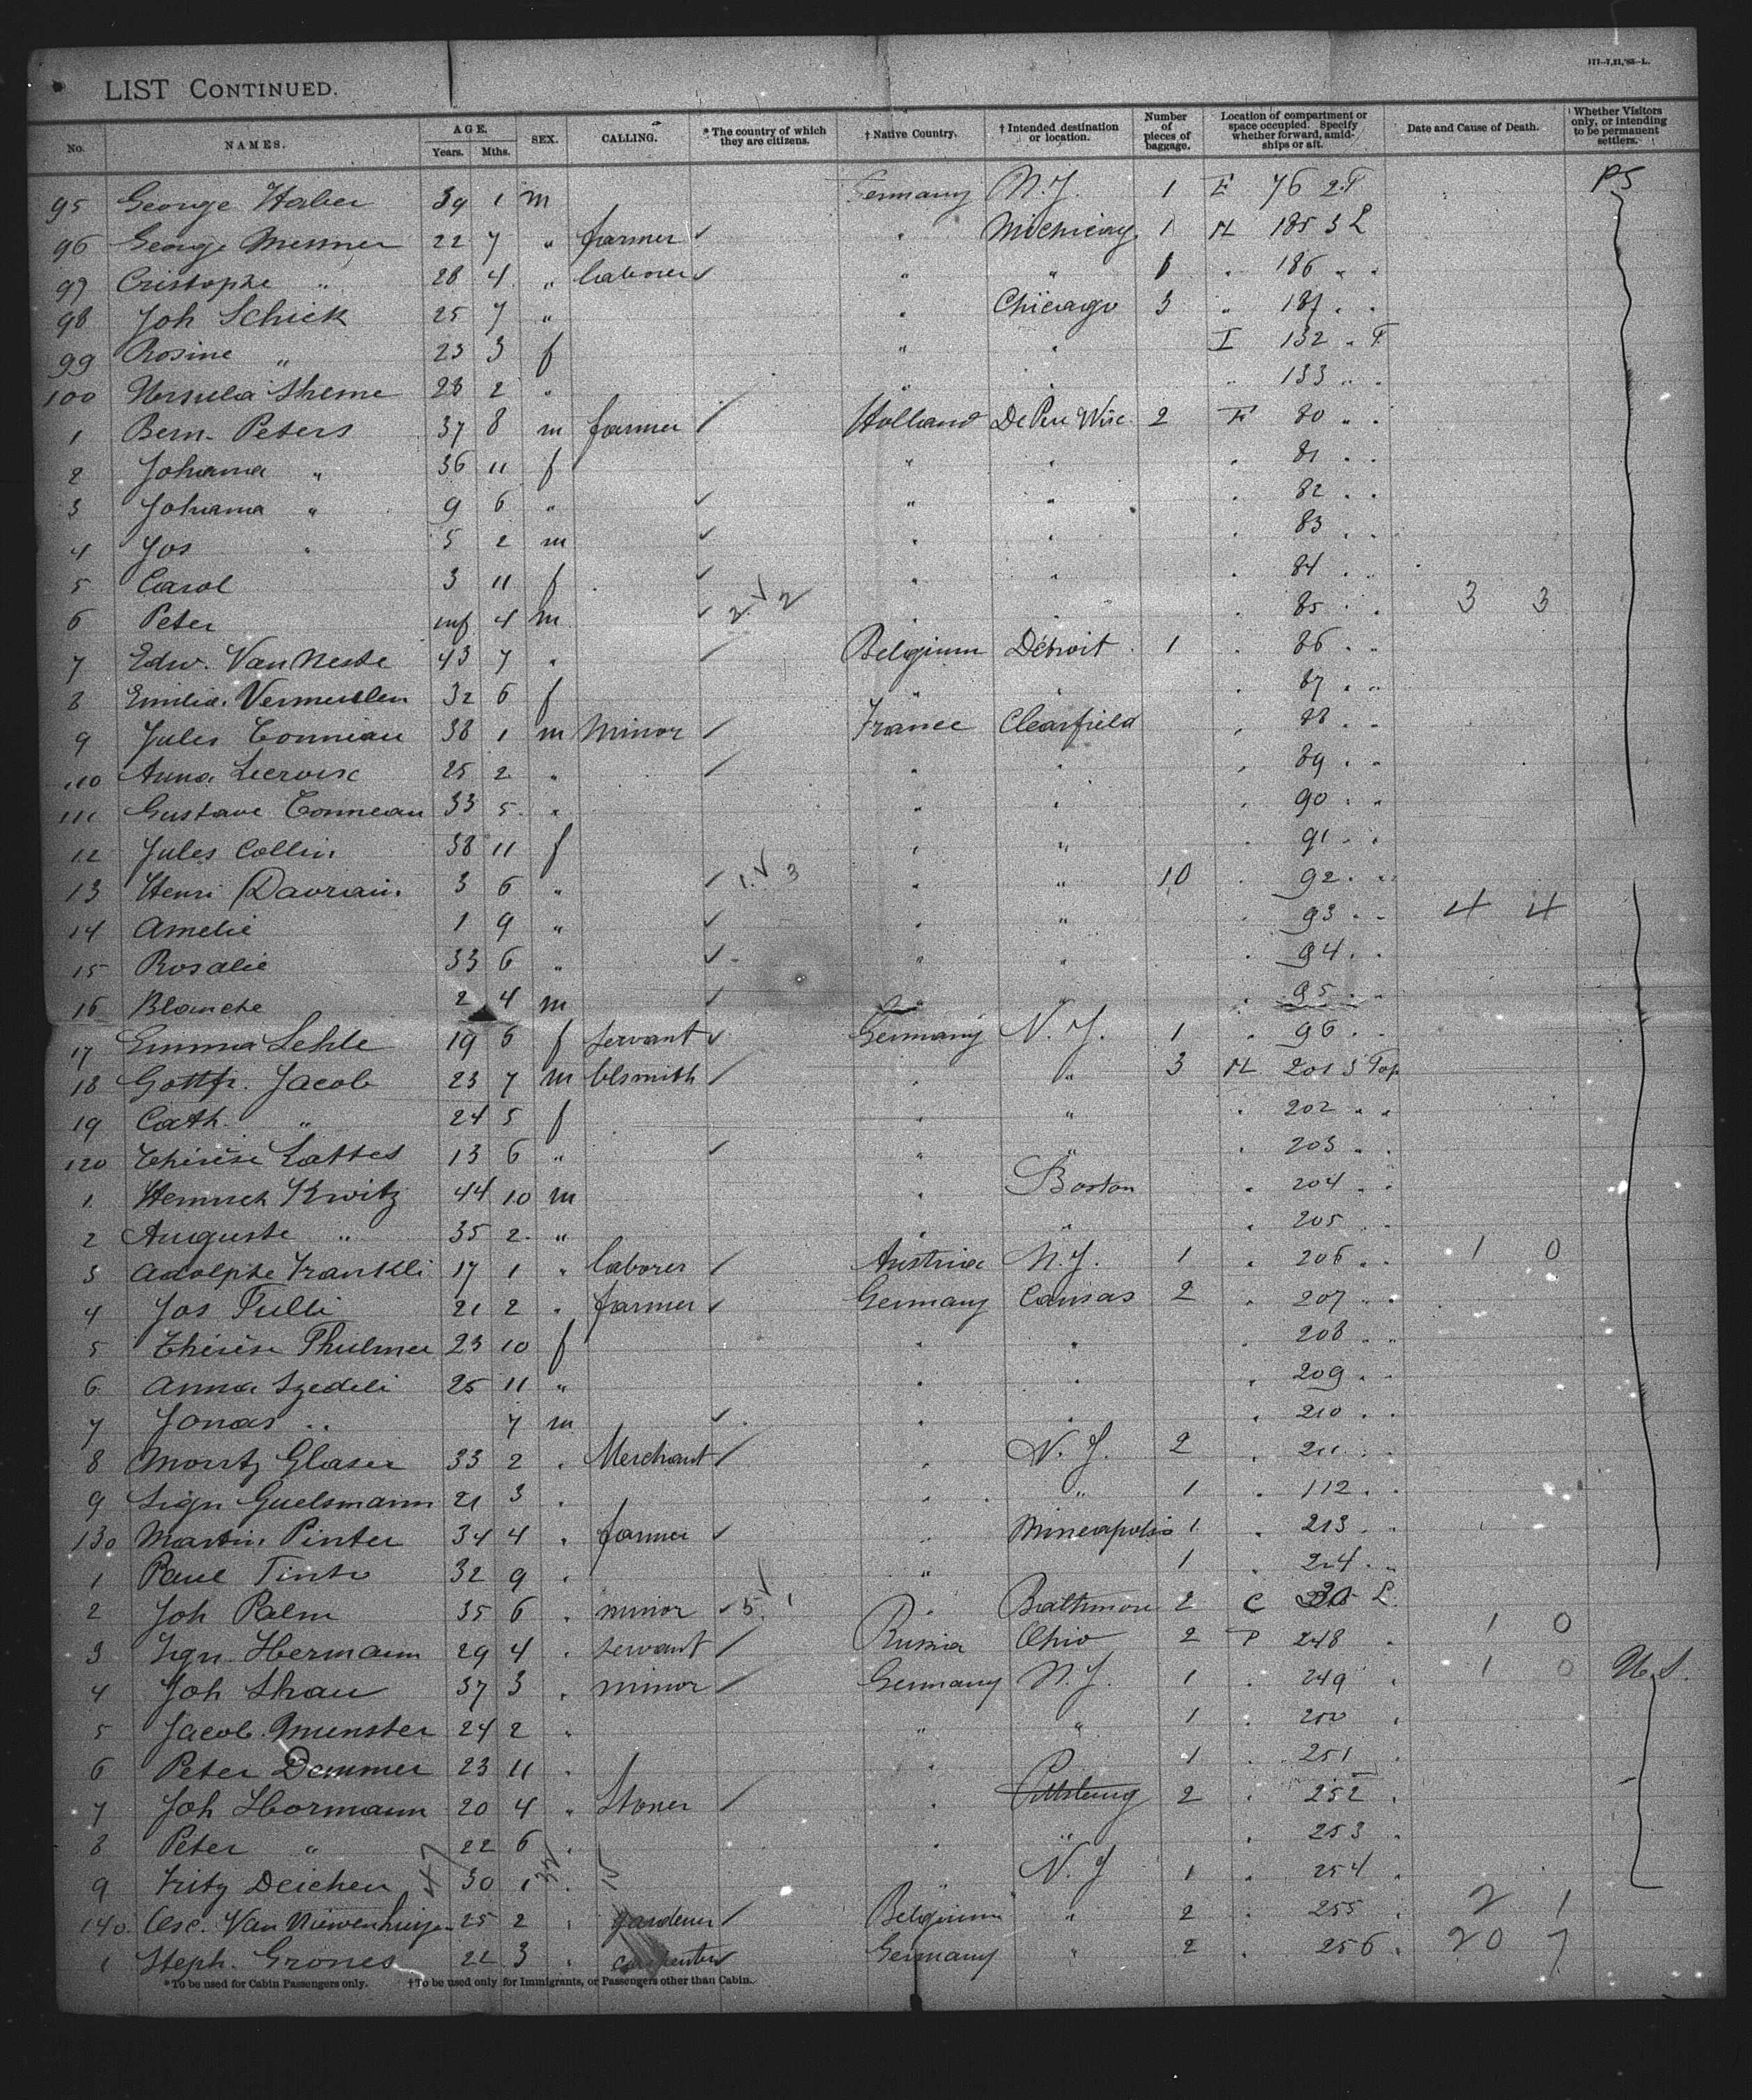 LIST CONTINUED.
No. NAMES. AGE. Years. Mths. SEX. CALLING. * The country of which they are citizens. † Native Country. † Intended destination or location. Number of pieces of baggage. Location of compartment or space occupied. Specify whether forward, amidships or aft. Date and Cause of Death. Whether Visitors only, or intending to be permanent settlers.
95 George Haber 39 1 m Germany N.Y. 1 76 2 PS
96 George Messner 22 7 " farmer ✓ " Michicay 1 H 185 3 L
97 Cristophe " 28 4 " laborer ✓ " " 1 " 186 " "
98 Joh Schick 25 7 " " Chicago 3 " 187 " "
99 Rosine " 23 3 f " " I 132 "
100 23 2 " " " " 133 " "
1 Bern. Peters 37 8 m farmer ✓ Holland De Pere Wisc. 2 80 " "
2 Johanna " 36 11 f " " " 81 " "
3 Johanna " 9 6 " ✓ " " " 82 " "
4 Jos " 5 2 m ✓ " " " 83 " "
5 Carol 3 11 f ✓ " " " 84 " "
6 Peter inf 4 m ✓ 2 ✓ 2 " " " 85 " " 3 3
7 Edw. Van Neste 43 7 " ✓ Belgium Detroit 1 " 86 " "
8 Emilia Vermeulen 32 6 f " " " 87 " "
9 Jules Conneau 38 1 m Minor ✓ France Clearfield " 88 " "
110 Anna 25 2 " ✓ " " " 89 " "
111 Gustave Conneau 33 5 " " " " 90 " "
12 Jules Collin 38 11 f " " " 91 " "
13 Henri Davrain 3 6 " ✓ 1 ✓ 3 " " 10 " 92 " "
14 Amelie 1 9 " ✓ " " " 93 " " 4 4
15 Rosalie 33 6 " ✓ " " " 94 " "
16 Blanche 2 4 m ✓ " " " 95 " "
17 Emma Lehle 19 6 f servant ✓ Germany N.Y. 1 " 96 " "
18 Gottfr. Jacob 23 7 m blsmith ✓ " " 3 H 201 3 Top
19 Cath. " 24 5 f " " " 202 " "
120 Thérèse Lattes 13 6 " ✓ " " " 203 " "
1 Heinrich Kwitz 44 10 m " Boston " 204 " "
2 Auguste " 35 2 " " " " 205 " "
3 Adolphe Frankli 17 1 " laborer ✓ Austria N.Y. 1 " 206 " " 1 0
4 Jos Fulli 21 2 " farmer ✓ Germany Cansas 2 " 207 " "
5 Thérèse Thulmer 23 10 f " " " 208 " "
6 Anna Szedeli 25 11 " " " " 209 " "
7 Jonas " 7 m ✓ " " " 210 " "
8 Moritz Glaser 33 2 " Merchant ✓ " N.Y. 2 " 211 " "
9 Sign Guelsmann 21 3 " " " 1 " 112 " "
130 Martin Pinter 34 4 " farmer ✓ " Mineapolis 1 " 213 " "
1 Paul Tinto 32 9 " " 1 " 214 " "
2 Joh Palm 35 6 " minor ✓ 5 ✓ 1 " Balthimore 2 C L
3 Ign. Hermann 29 4 " servant ✓ Russia Ohio 2 P 248 " 1 0
4 Joh Shau 37 3 " minor ✓ Germany N.Y. 1 " 249 " 1 0 U.S.
5 Jacob Munster 24 2 " " " 1 " "
6 Peter Demmer 23 11 " " 1 " 251 "
7 Joh Hormann 20 4 " Stoner ✓ " Pittsburg 2 " 252 "
8 Peter " 22 6 " " " " 253 "
9 Fritz Deichen 47 30 1 " " N.Y 1 " 254 "
140 Osc. Van Niewenhuijsen 25 2 " gardener ✓ Belgium " 2 " 255 " 2 1
1 Steph. Grones 22 3 " carpenter ✓ Germany " 2 " 256 " 20 7
* To be used for Cabin Passengers only. † To be used only for Immigrants, or Passengers other than Cabin.